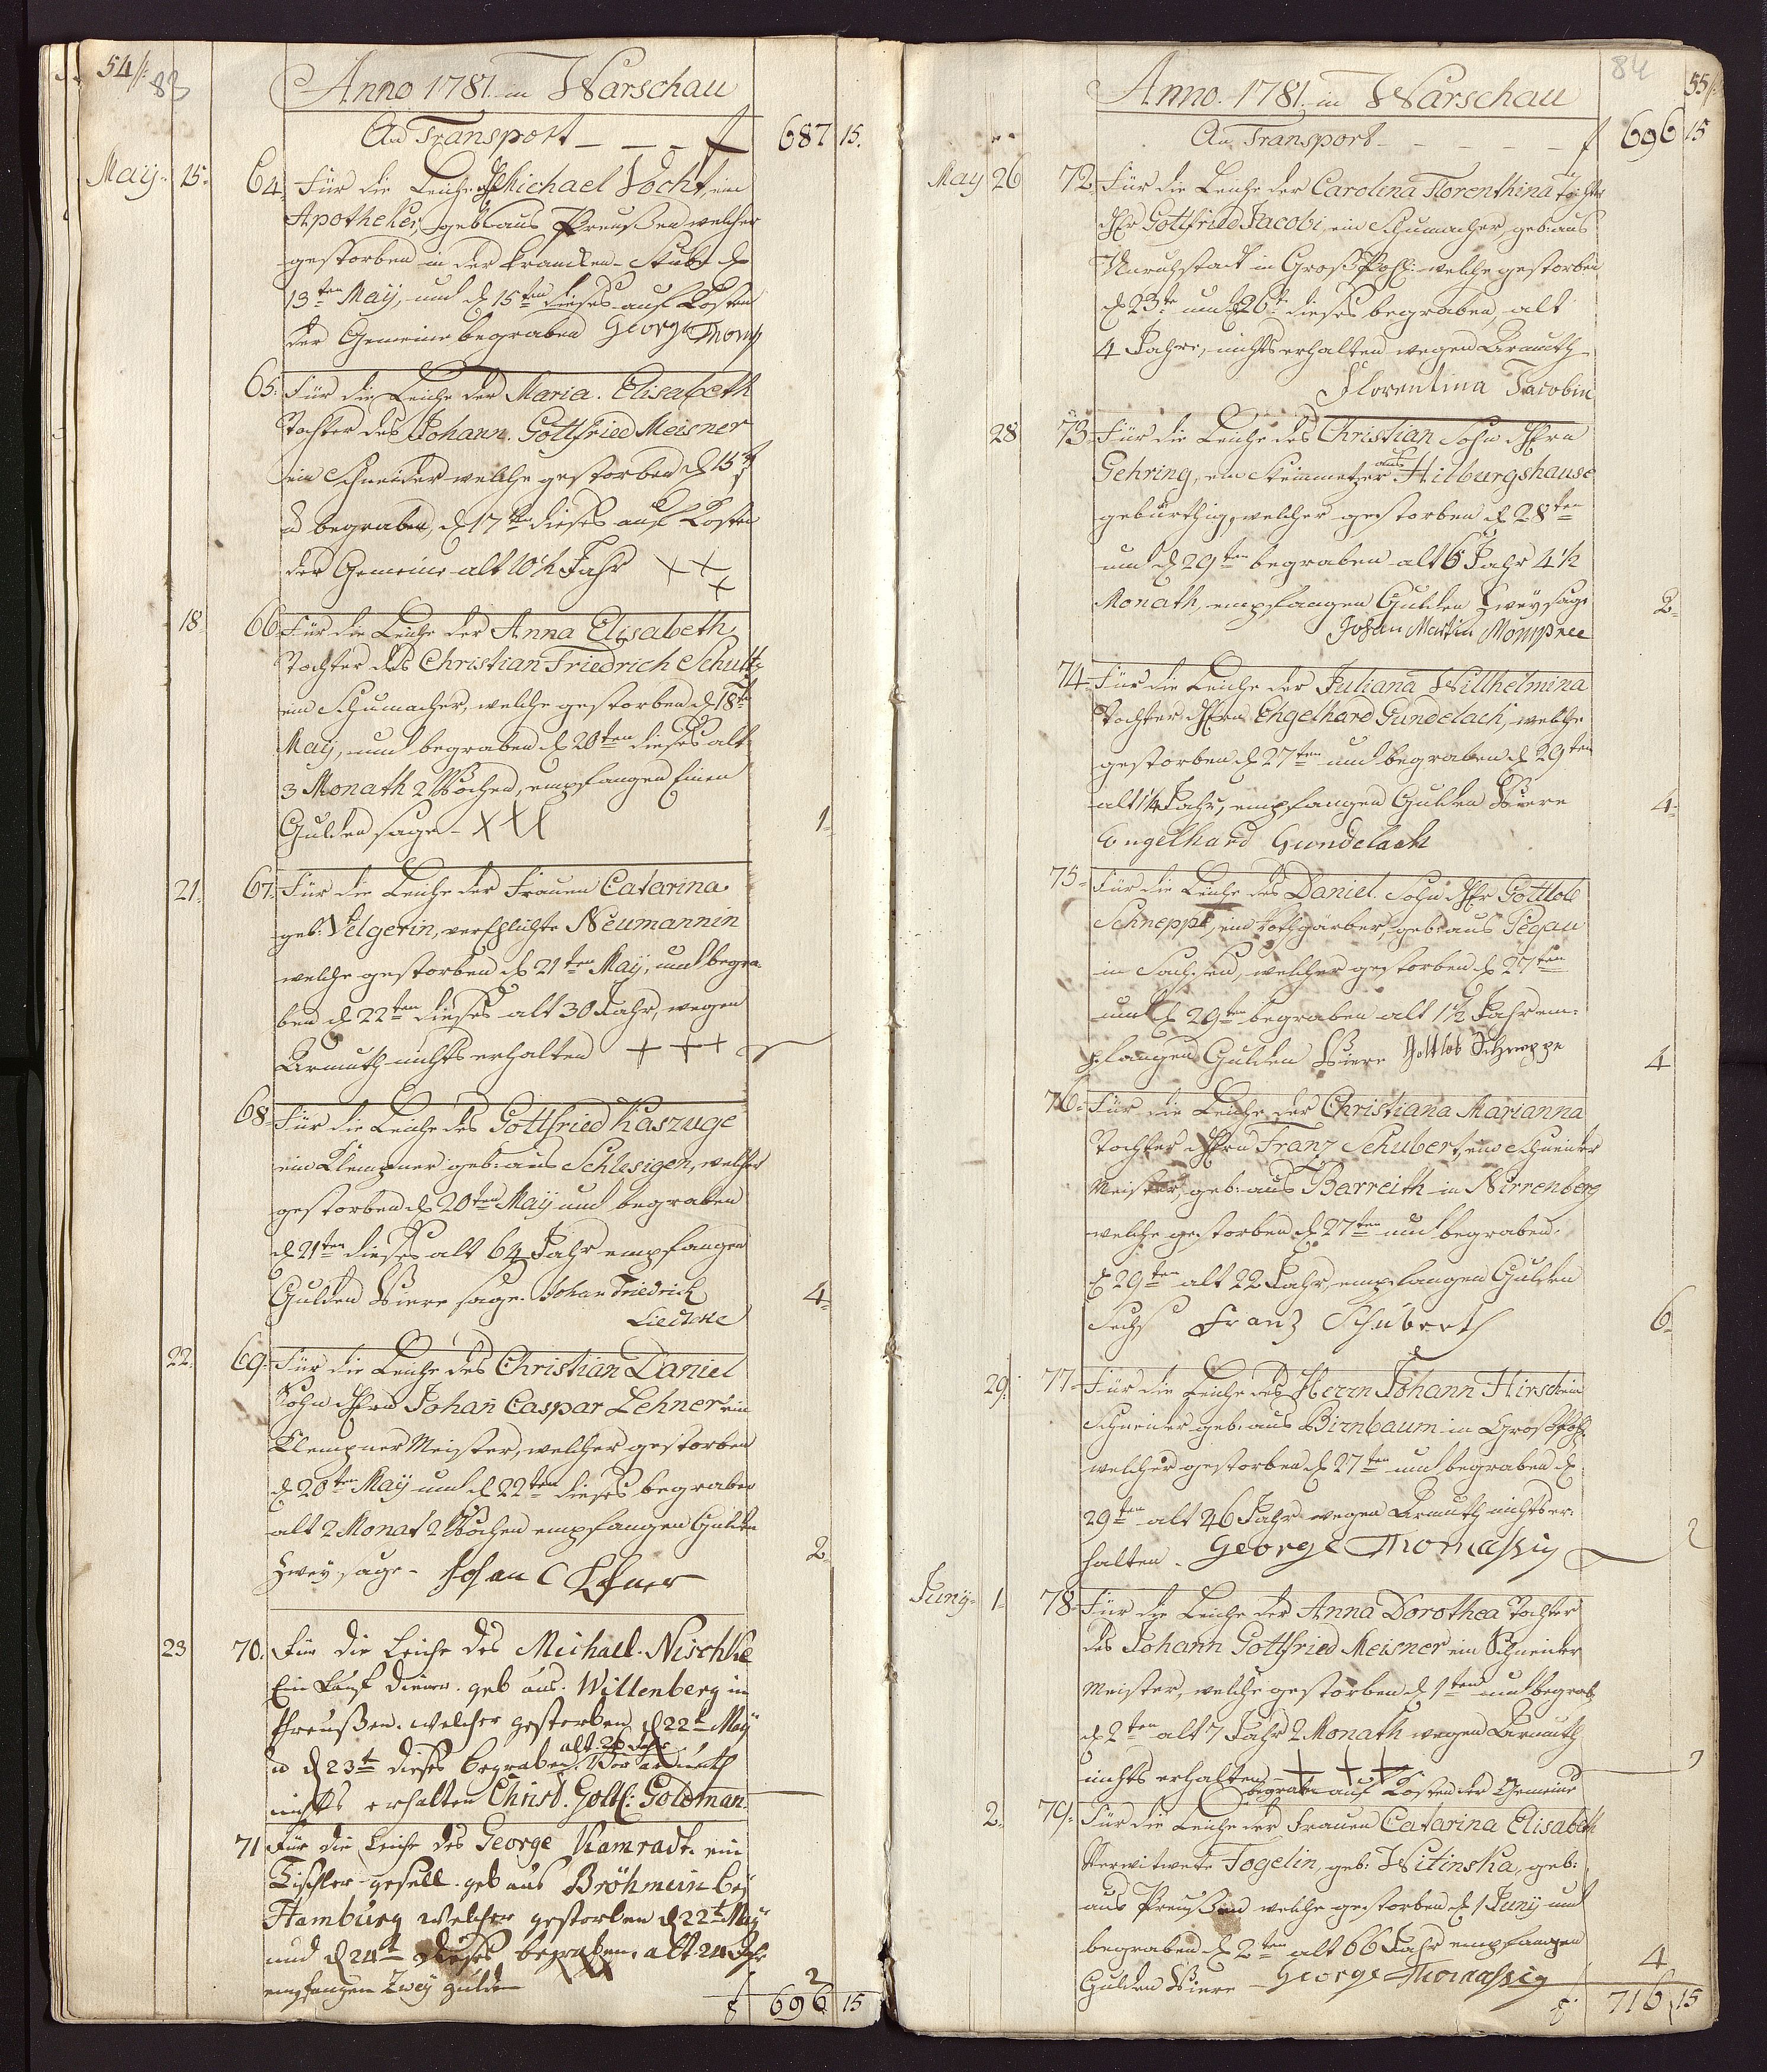 54//.
83
Anno 1781 in Warschau
An Transport - - - f 687 15.
May. 15. 64. Für die Leiche des Michael Vocht, ein
Apotheker, geb: aus Preußen welcher
gestorben in der krancken-Stube d
13ten May, und d 15ten dieses auf Kosten
der Gemeine begraben George Thom
65. Für die Leiche der Maria. Elisabeth
Tochter des Johann. Gottfried Meisner
ein Schneider welche gestorben d 15t
u begraben, d 17ten dieses auf Kosten
der Gemeine alt 10½ Jahr +++
18. 66. Für die Leiche der Anna Elisabeth
Tochter des Christian Friedrich Schultz
ein Schumacher, welche gestorben d 18te
May, und begraben d 20ten dieses alt
3 Monath 2 Wochen, empfangen Einen
Gulden sage - XXX 1-
21. 67. Für die Leiche der Frauen Catarina
geb: Velgerin, verehlichte Neumannin
welche gestorben d 21ten May, und begra-
ben d 22ten dieses alt 30 Jahr, wegen
Armuth nichts erhalten +++
68. Für die Leiche des Gottfried Kaszuge
ein Klempner geb: aus Schlesigen, welcher
gestorben d 20ten May und begraben
d 21ten dieses alt 64 Jahr empfangen
Gulden Viere sage. Johan Friedrich 4-
22. 69. Für die Leiche des Christian Daniel
Sohn dHrn Johan Caspar Lehner ein
Klempner Meister, welcher gestorben
d 20ten May und d 22ten dieses begraben
alt 2 Monat 2 Wochen empfangen Gulden
Zwey sage - Johan C Lehner 2-
23 70. Für die Leiche des Michael. Nischke
Ein Kauf diener. geb aus. Willenberg in
Preußen. welcher gestorben d 22t May
alt 26 Jahr
u d 23t dieses begraben. Vor armuth
nichts erhalten Christ. Gottl: Goldman.
71 Für die Leiche des George Kamradt. ein
Tischler-gesell. geb aus Bröhmein bey
Hamburg welcher gestorben d 22t May
und d 24t dieses begraben. alt 24 Jahr
empfangen Zwey gulden 2
f 696 15
84
55//.
Anno. 1781. in Warschau
An Transport - - - - - f 696 15
May 26 72. Für die Leiche der Carolina Florenthina Tochter
dHr Gottfried Jacobi, ein Schumacher, geb: aus
Unruhstadt in Groß Pohl: welche gestorben
d 23te und d 26t dieses begraben, alt
4 Jahre, nichts erhalten wegen Armuth
Florentina Jacobin
28 73. Für die Leiche des Christian Sohn dHrn
Gehring, ein Steinmetzer aus Hilburgshause
gebürthig, welcher gestorben d 28ten
und d 29ten begraben alt 6 Jahr 4½
Monath, empfangen Gulden Zwey sage 2-
Johan Martin Mompree
74. Für die Leiche der Juliana Willhelmina
Tochter dHrn Engelhard Gundelach, welche
gestorben d 27ten und begraben d 29ten
alt 1¼ Jahr, empfangen Gulden Viere 4-
Engelhard Gundelach
75. Für die Leiche des Daniel. Sohn dHr Gottlob
Schneppe, ein Rothgärber, geb: aus Pegau
in Sachsen, welcher gestorben d 27ten
und d 29ten begraben alt 1½ Jahr em-
pfangen Gulden Viere Gottlob Schneppe 4
76. Für die Leiche der Christiana Marianna
Tochter dHrn Franz Schubert, ein Schneider
Meister, geb: aus Barreith in Nirrenberg
welche gestorben d 27ten und begraben
d 29ten alt 22 Jahr, empfangen Gulden
Sechs Franz Schubert 6-
29. 77. Für die Leiche des Herrn Johann Hirsch ein
Schneider geb: aus Birnbaum in Groß Pohl:
welcher gestorben d 27ten und begraben d
29ten alt 46 Jahr wegen Armuth nichts er-
halten. George Thomassig
Juny. 1. 78. Für die Leiche der Anna Dorothea Tochter
des Johann Gottfried Meisner ein Schneider
Meister, welche gestorben d 1ten und begrab
d 2ten alt 7 Jahr 2 Monath wegen Armuth
nichts erhalten - +++
begraben auf Kosten der Gemeine
2. 79. Für die Leiche der Frauen Catarina Elisabeth
Verwitwete Fogelin, geb: Witinska, geb:
aus Preußen welche gestorben d 1 Juny und
begraben d 2ten alt 66 Jahr empfangen
Gulden Viere - George Thomassig 4
f. 716 15